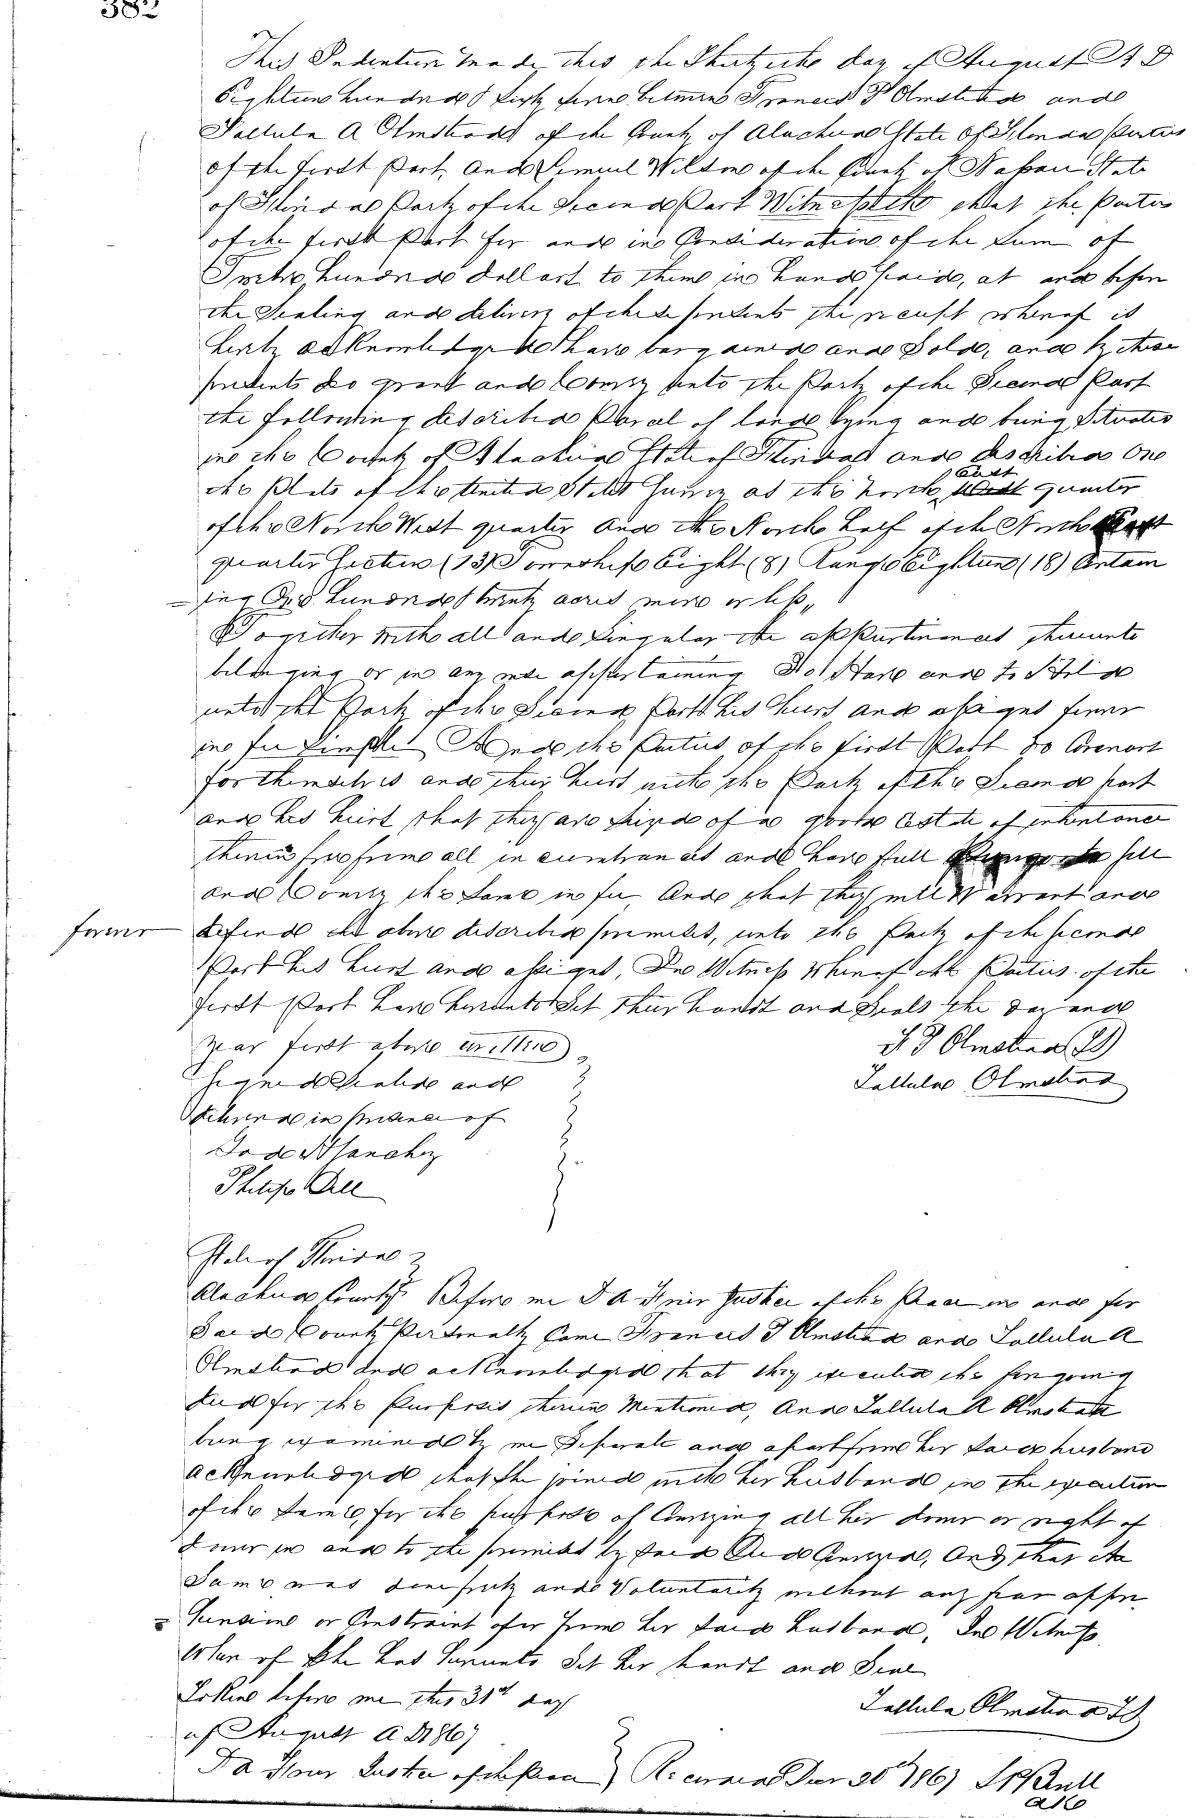 382
This Indenture made this the Thirtieth day of August A D
Eighteen hundred & sixty seven between Francis J Olmstead and
Tallula A Olmstead of the County of Alachua State of Florida parties
of the first Part, and Lemuel Wilson of the County of Nassau State
of Florida Party of the Second Part Witnesseth that the Parties
of the first Part for and in Consideration of the sum of
Twelve hundred dollars to them in hand paid, at and before
the Sealing and delivery of these presents the receipt whereof is
hereby acknowledged have bargained and Sold, and by these
presents do grant and Convey unto the Party of the Second Part
the following described Parcel of land lying and being Situated
in the County of Alachua State of Florida and described On
the Plats of the United States Survey as the North East quarter
of the North West quarter and the North half of the North East
quarter Section (13) Township Eight (8) Range Eighteen (18) Contain
=ing One hundred & twenty acres more or less,,
Together with all and Singular the appurtenances thereunto
belonging or in any wise appertaining To Have and to Hold
unto the Party of the Second Part his heirs and assigns forever
in fee Simple And the Parties of the first Part do Covenant
for themselves and their heirs with the Party of the Second part
and his heirs that they are seized of a good Estate of inheritance
therein free from all incumbrances and have full sell
and Convey the same in fee, And that they will Warrant and
forever defend the above described premises, unto the Party of the second
Part his heirs and assigns, In Witness Whereof the Parties of the
first Part have hereunto Set their hands and Seals the day and
year first above written
F J Olmstead
Signed Sealed and
Tallula Olmstead
delivered in presence of
Philip Dell
State of Florida
Alachua County Before me Justice of the Peace in and for
Said County Personally Came Francis J Olmstead and Tallula A
Olmstead and acknowledged that they executed the foregoing
deed for the Purposes therein Mentioned, And Tallula A Olmstead
being examined by me Seperate and apart from her said husband
acknowledged that she joined with her husband in the execution
of the same, for the purpose of Conveying all her dower or right of
dower in and to the premises by said Deed Conveyed, And that the
Same was done freely and Voluntarily without any fear appre
=hension or Constraint of or from her said husband, In Witness
Whereof She has hereunto Set her hand and Seal
Taken before me this 31st day
Tallula Olmstead
of August A D 1867
Justice of the Peace
Recorded 30th 1867